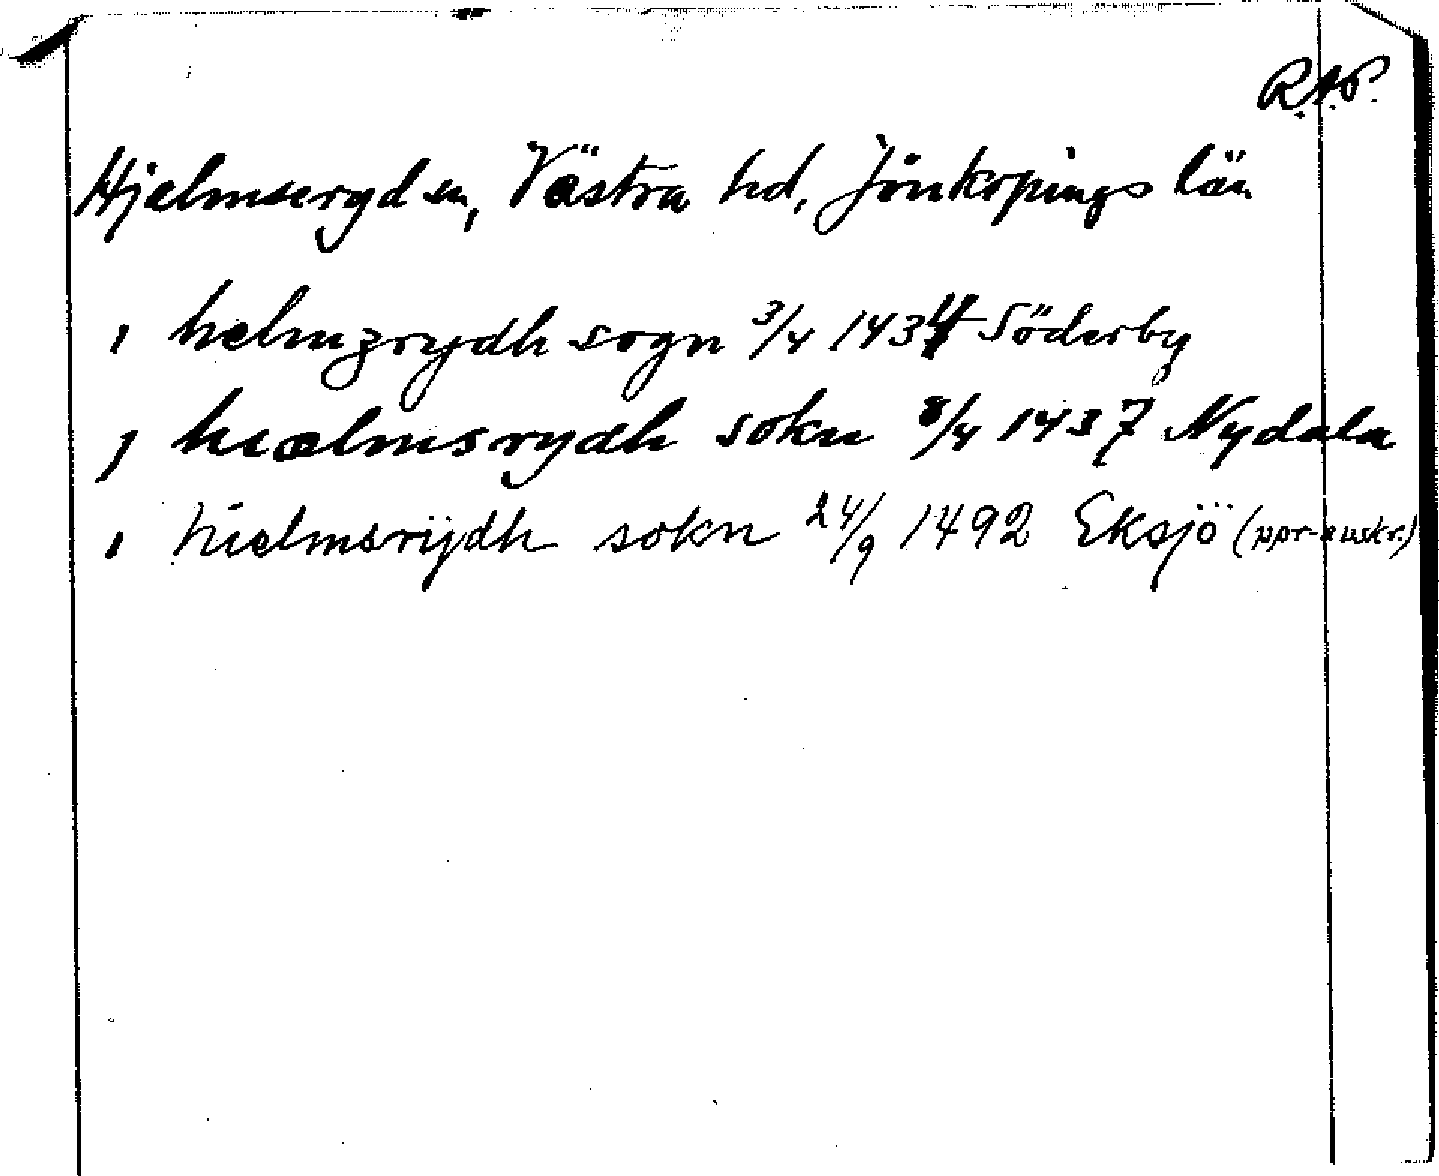 R.A.P.
Hjelmseryd sn, Västra hd, Jönköpings län
i helmzrydh sogn 3/4 1434 Söderby
j hiælmsrydh sokn 8/4 1437 Nydala
i hielmsrijdh sokn 24/9 1492 Eksjö (ppr-avskr.)